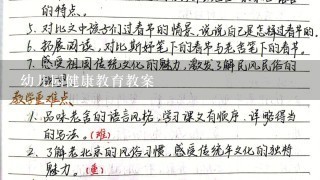 的特点。
5. 对比文中孩子们过春节的情景,说说自己是怎样过春节的。
6. 拓展阅读,对比斯好笔下的春节与老舍笔下的春节。
7. 感受祖国传统文化的魅力,激发了解民风民俗的
幼儿园健康教育教案
教学重难点
1. 品味老舍的语言风格,学习课文有顺序、详略得当
的写法。(难)
2. 了解老北京的风俗习惯,感受传统年文化的独特
魅力。(重)